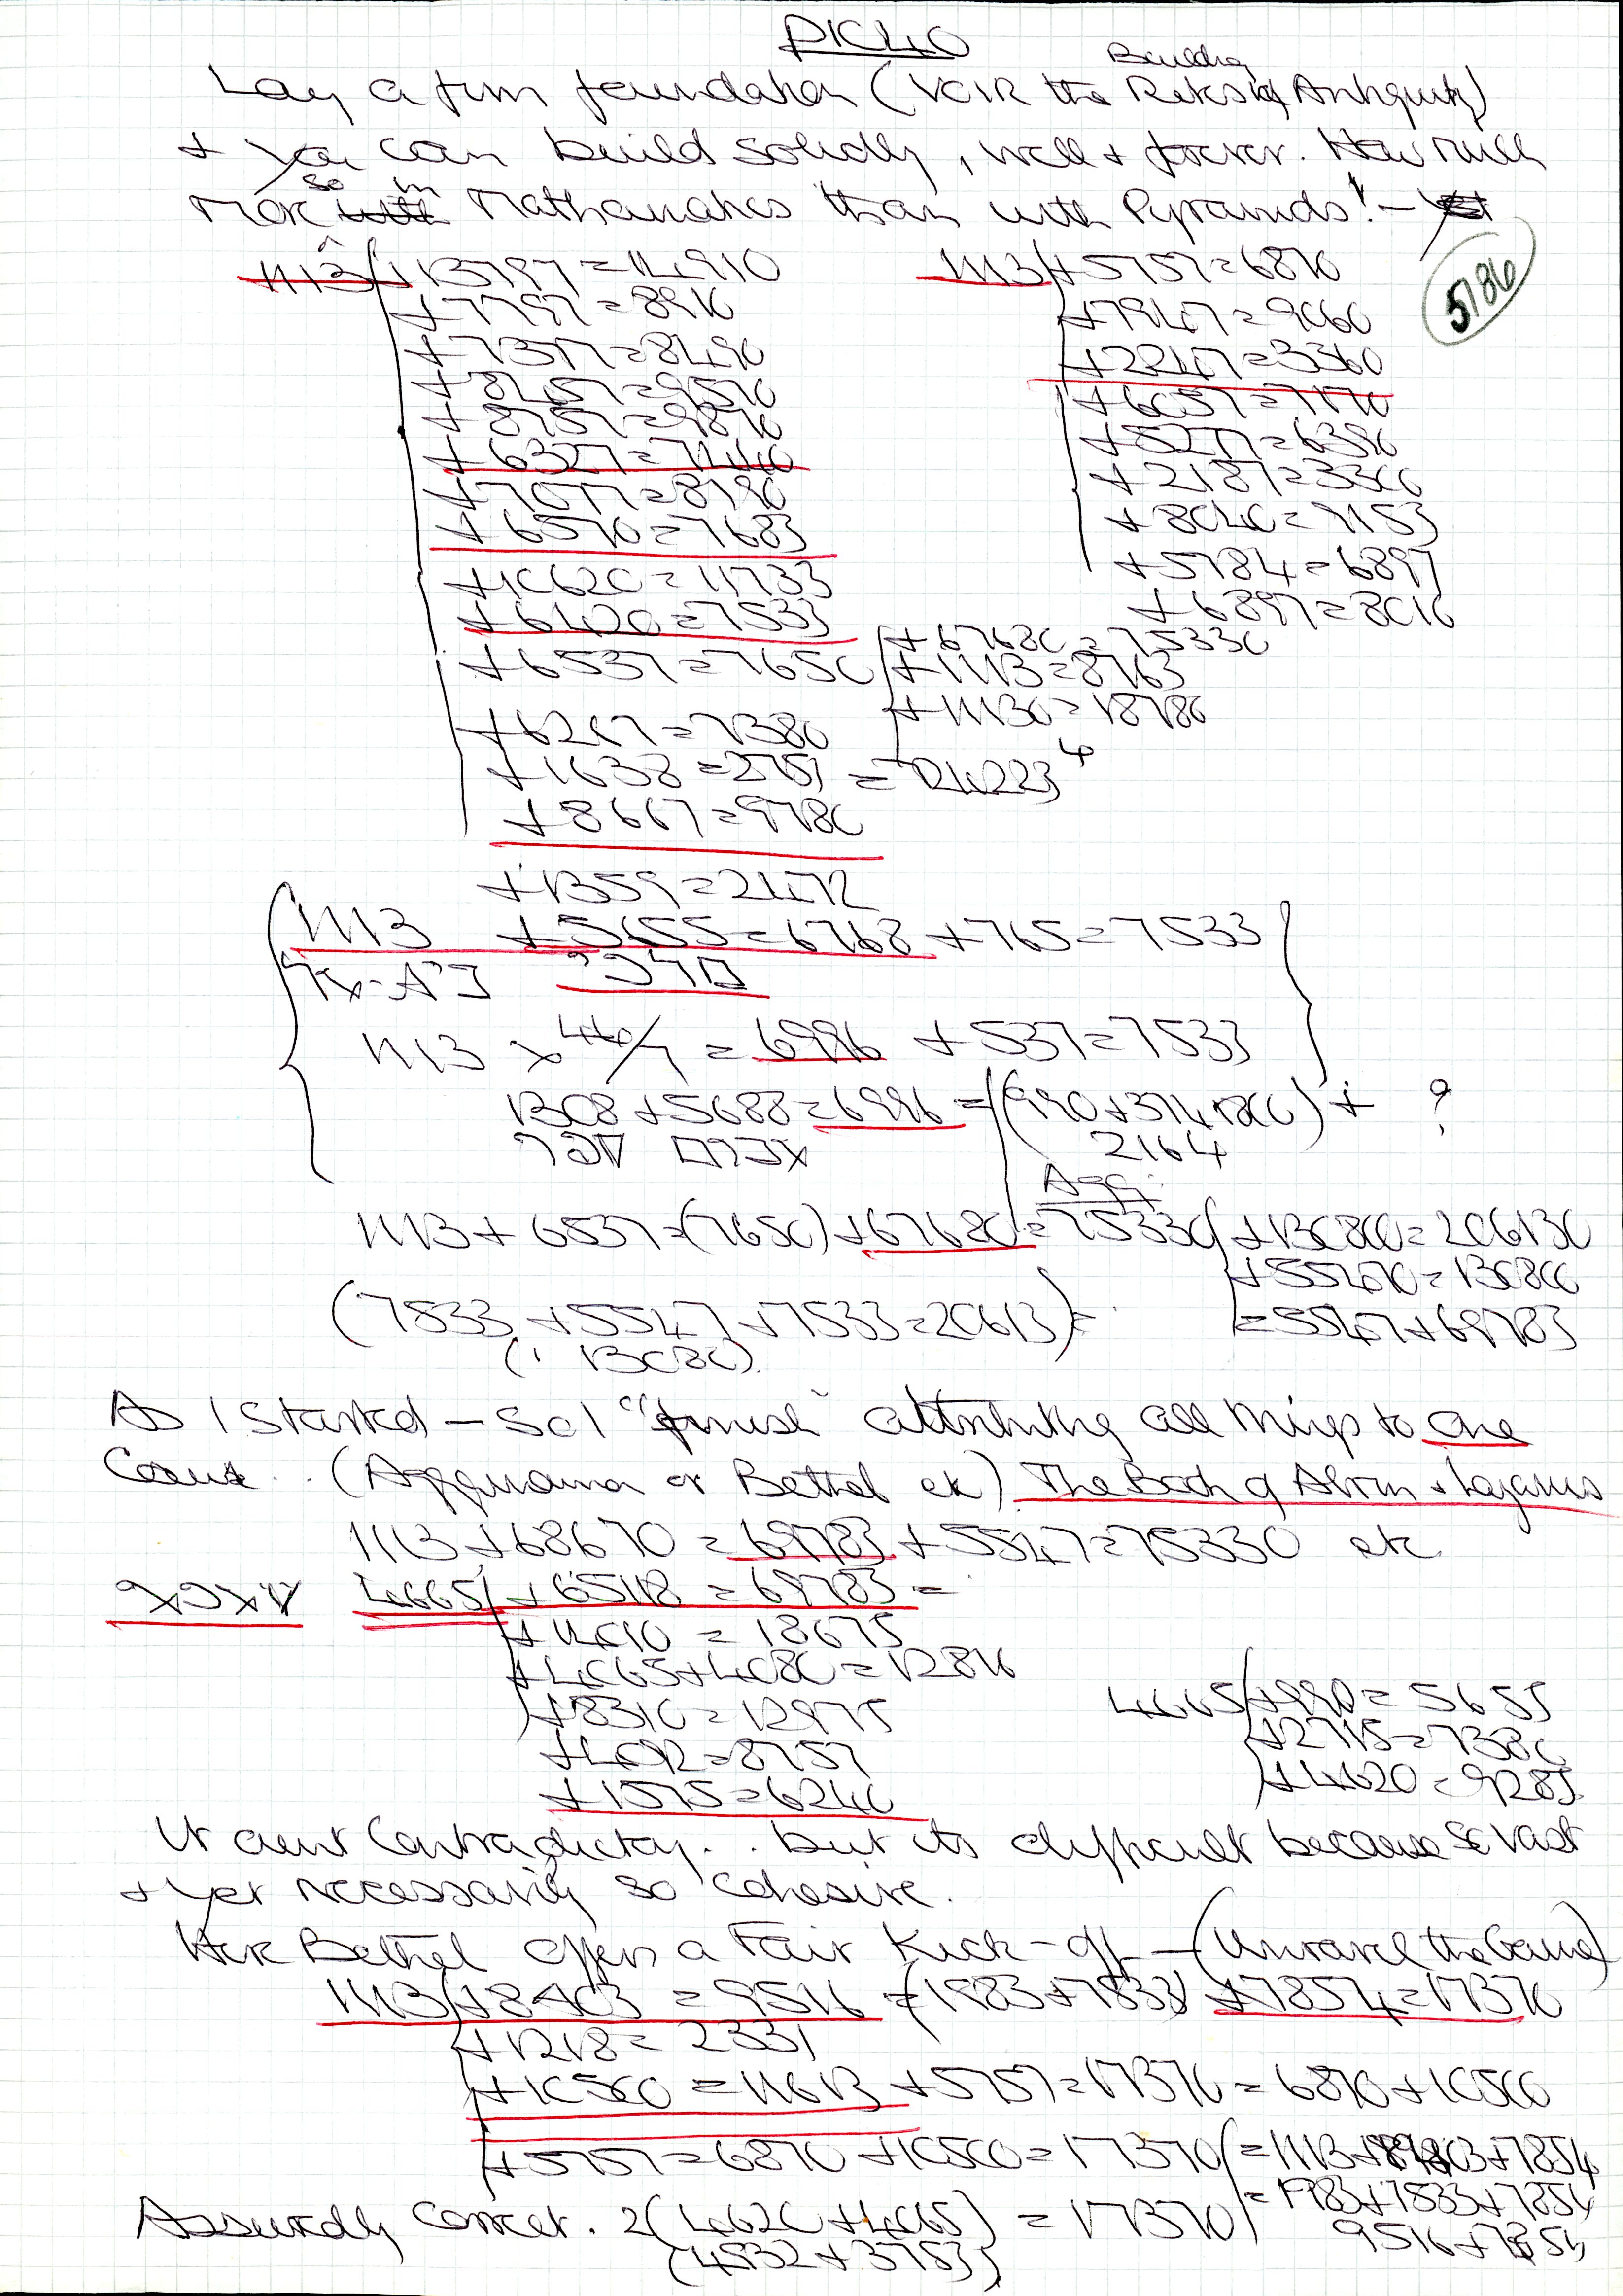 Lay a firm foundation (VOIR the Reksid Building Antiquity)
+ You can build solidly, well + forever. How much
more so in Mathematics than with Pyramids! -
5786
1113 + 13797 = 14910
+ 7797 = 8910
+ 7377 = 8490
+ 8457 = 9570
+ 8757 = 9870
+ 6327 = 7440
+ 7077 = 8190
+ 6570 = 7683
+ 10620 = 11733
+ 6420 = 7533
+ 6537 = 7650
+ 6267 = 7380
+ 1638 = 2751 =
+ 8667 = 9780
+ 1359 = 2472
1113 + 5757 = 6870
+ 7947 = 9060
+ 2247 = 3360
+ 6057 = 7170
+ 5277 = 6390
+ 2187 = 3300
+ 8040 = 9153
+ 5784 = 6897
+ 6897 = 8010
+ 67680 = 75330
+ 1113 = 8763
+ 11130 = 18780
1113 + 5655 = 6768 + 765 = 7533
1113 x 44/7 = 6996 + 537 = 7533
1308 + 5688 = 6996 = (990 + 3714 1800) + ?
2164
1113 + 6537 = (7650) + 67680 = 75330 + 130800 = 206130
+ 55470 = 130800
(7533 + 5547 + 7533 = 20613) =
= 5547 + 69783
(13080)
As I started - so I "finish" attributing all things to One
Cause .. (Agguama or Bethel etc) The Book of Abrm + Lazarus
1113 + 68670 = 69783 + 5547 = 75330 etc
4665 + 65118 = 69783 =
+ 14010 = 18675
+ 4065 + 4080 = 12810
+ 8310 = 12975
+ 4092 = 8757
+ 1575 = 6240
4665 + 990 = 5655
+ 2715 = 7380
+ 4620 = 9285
It aint Contradictory .. but its difficult because so vast
+ yet necessarily so cohesive.
Here Bethel offers a Fair Kick-off - (Unravel the Game)
1113 + 8403 = 9516 = (1983 + 7533) + 7854 = 17370
+ 1218 = 2331
+ 10500 = 11613 + 5757 = 17370 = 6870 + 10500
+ 5757 = 6870 + 10500 = 17370 = 1113 + 8403 + 7854
= 1983 + 7533 + 7854
Assuredly Correct. 2(4620 + 4065) = 17370
9516 + 7854
(4932 + 3753)